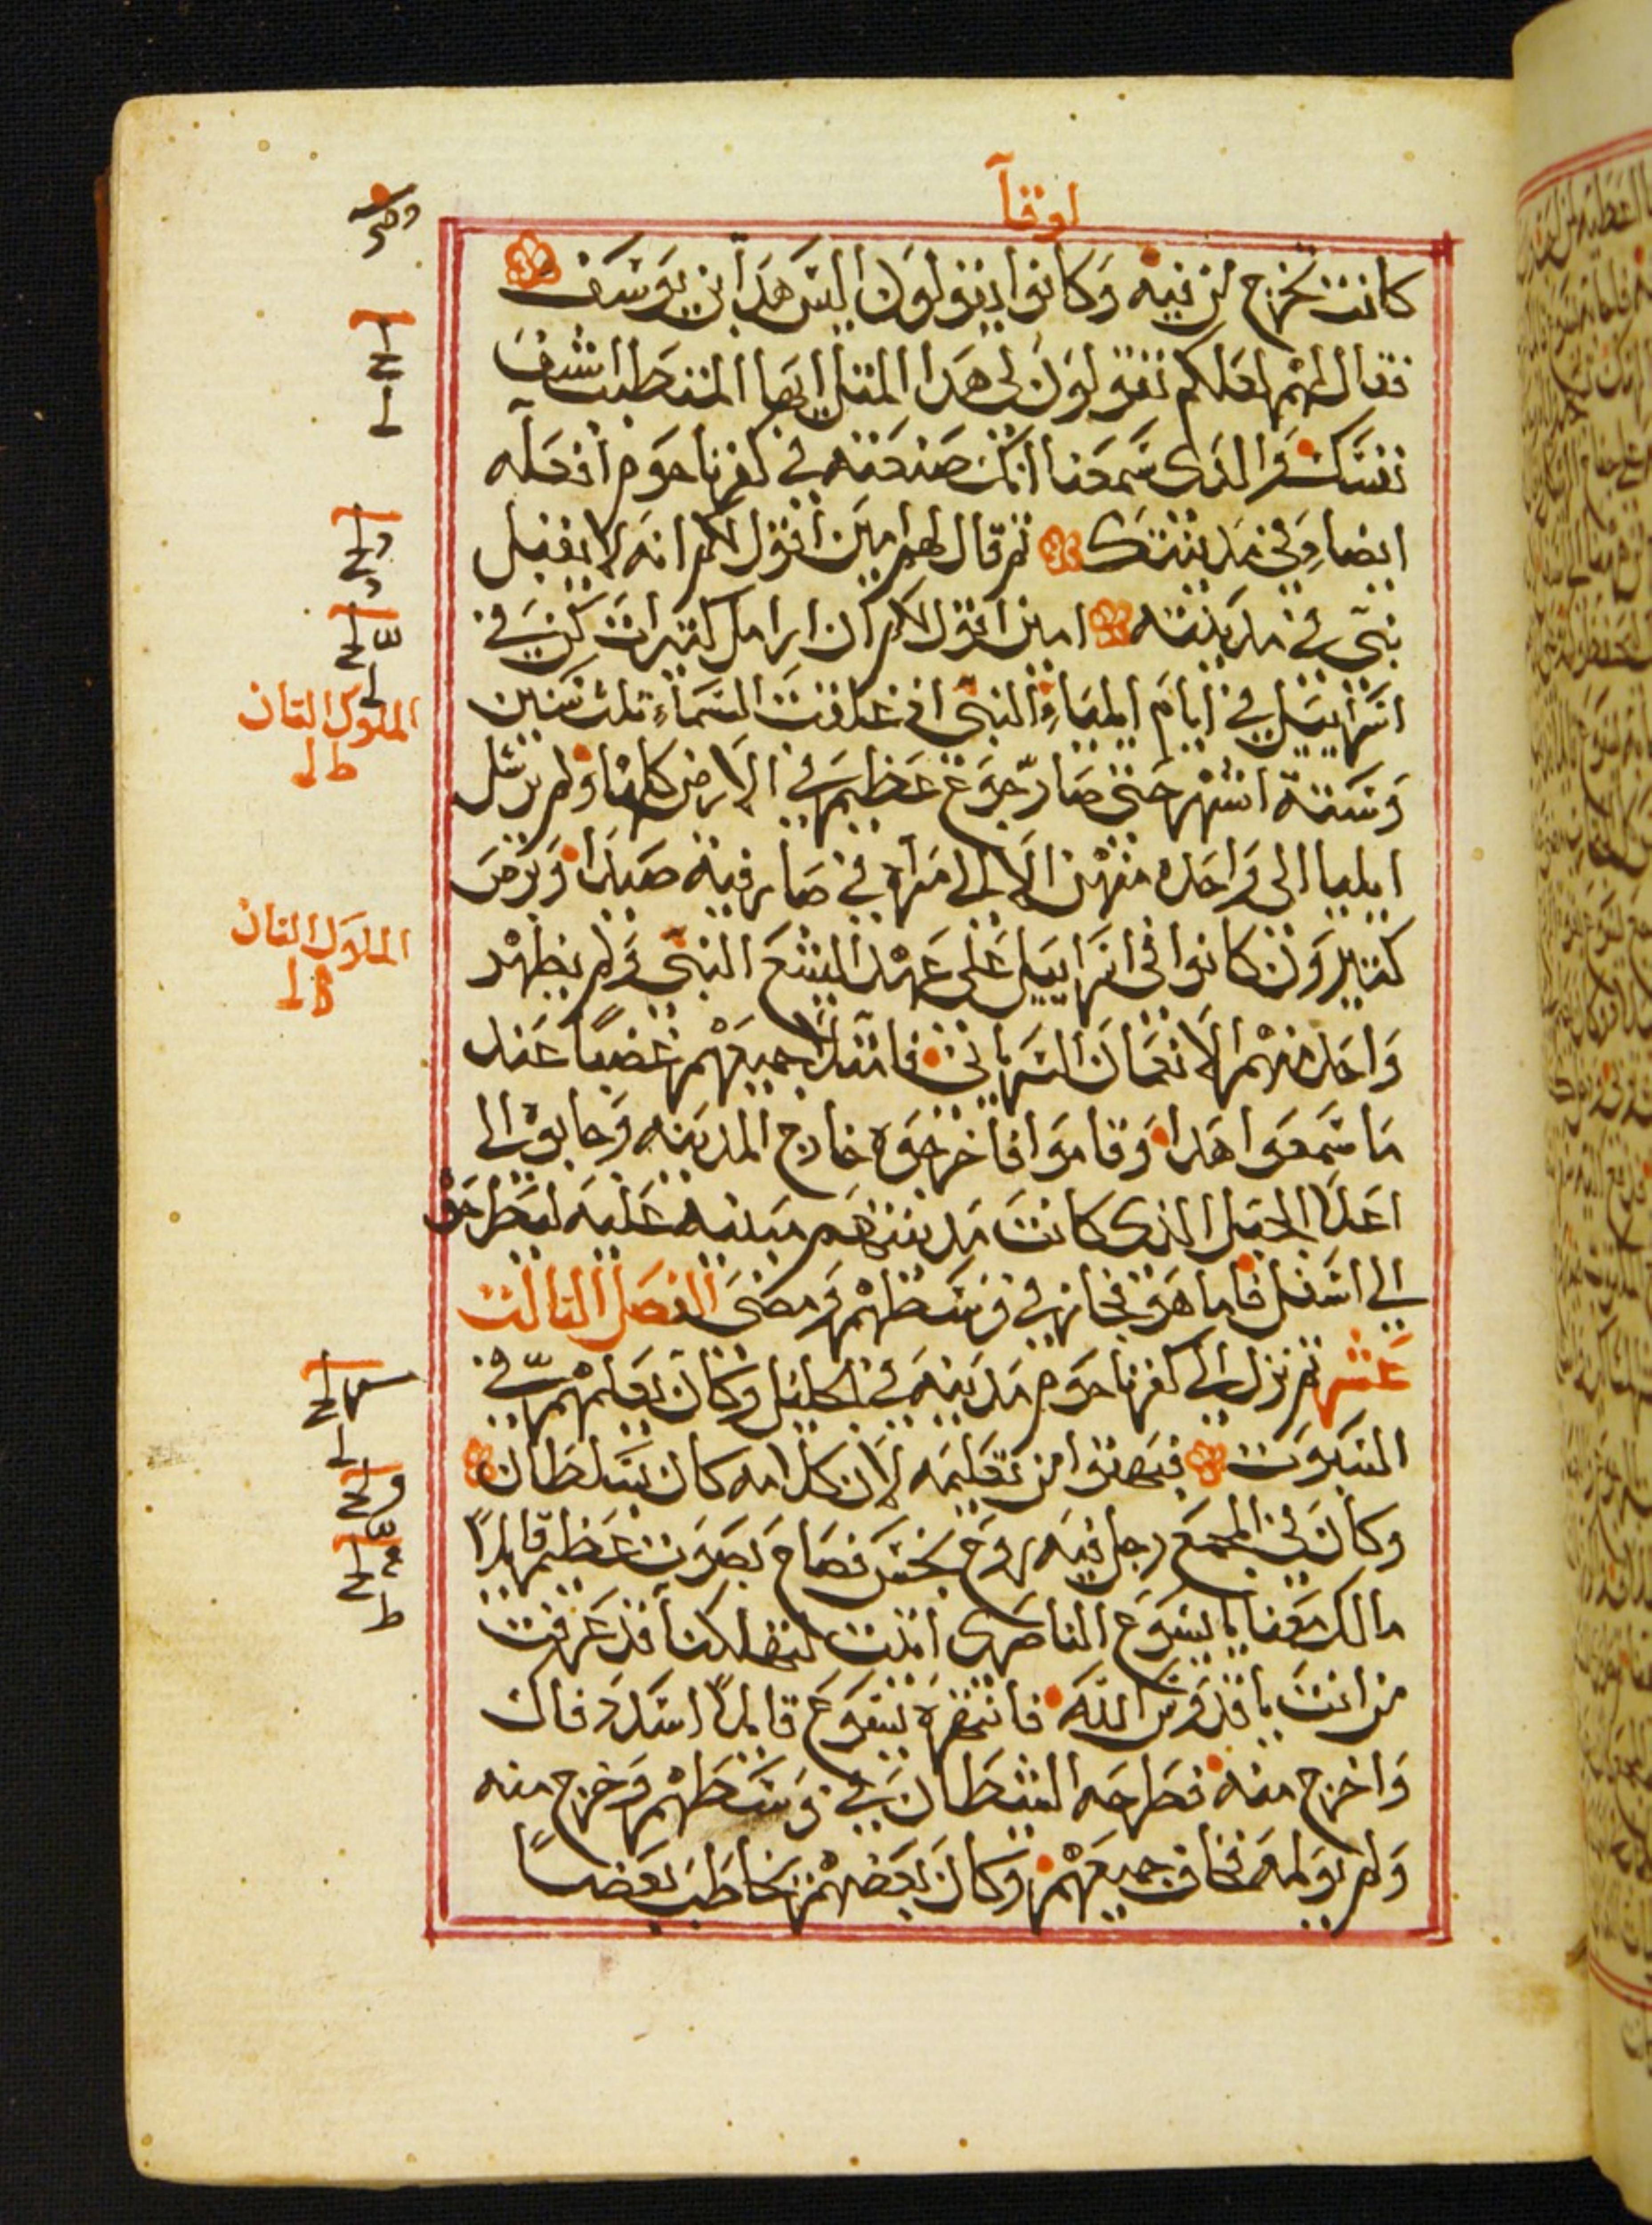 لوقا
كانت تخرج من فيه وكانوا يقولون اليس هدا ابن يوسف
فقال لهم لعلكم تقولون لي هدا المتل ايها المتطبب اشف
نفسك والدى سمعنا انك صنعته في كفرناحوم افعله
ايضا في مدينتك تم قال لهم امين اقول لكم انه لا يقبل
نبي في مدينته امين اقول لكم ان ارامل كتيرات كن في
اسراييل في ايام ايلياء النبي اد غلقت السماء تلت سنين
وستة اشهر حتى صار جوع عظيم في الارض كلها ولم يرسل
ايليا الى واحده منهن الا الى امراه في صارفية صيدا وبرص
كتيرون كانوا في اسراييل على عهد اليشع النبي ولم يطهر
واحد منهم الا نعمان السرياني فامتلا جميعهم غضبا عند
ما سمعوا هدا وقاموا فاخرجوه خارج المدينه وجابوه الى
اعلا الجبل الدى كانت مدينتهم مبنيه عليه ليطرحوه
الى اسفل فاما هو فجاز في وسطهم ومضى الفصل التالت
عشر تم نزل الى كفرناحوم مدينة في الجليل وكان يعلمهم في
السبوت فبهتوا من تعليمه لان كلامه كان بسلطان
وكان في المجمع رجل فيه روح نجس فصاح بصوت عظيم قايلا
مالك معنا يا يسوع الناصرى اتيت لتهلكنا قد عرفت
من انت يا قدوس الله فانتهره يسوع قايلا اسدد فاك
واخرج منه فطرحه الشطان في وسطهم وخرج منه
ولم يولمه فخاف جميعهم وكان بعضهم يخاطب بعضا
الملوك التان
الملوك التان